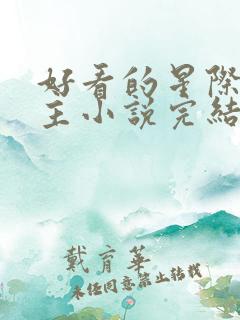 好看的星際
主小說完結
戴育華
未經同意禁止轉載